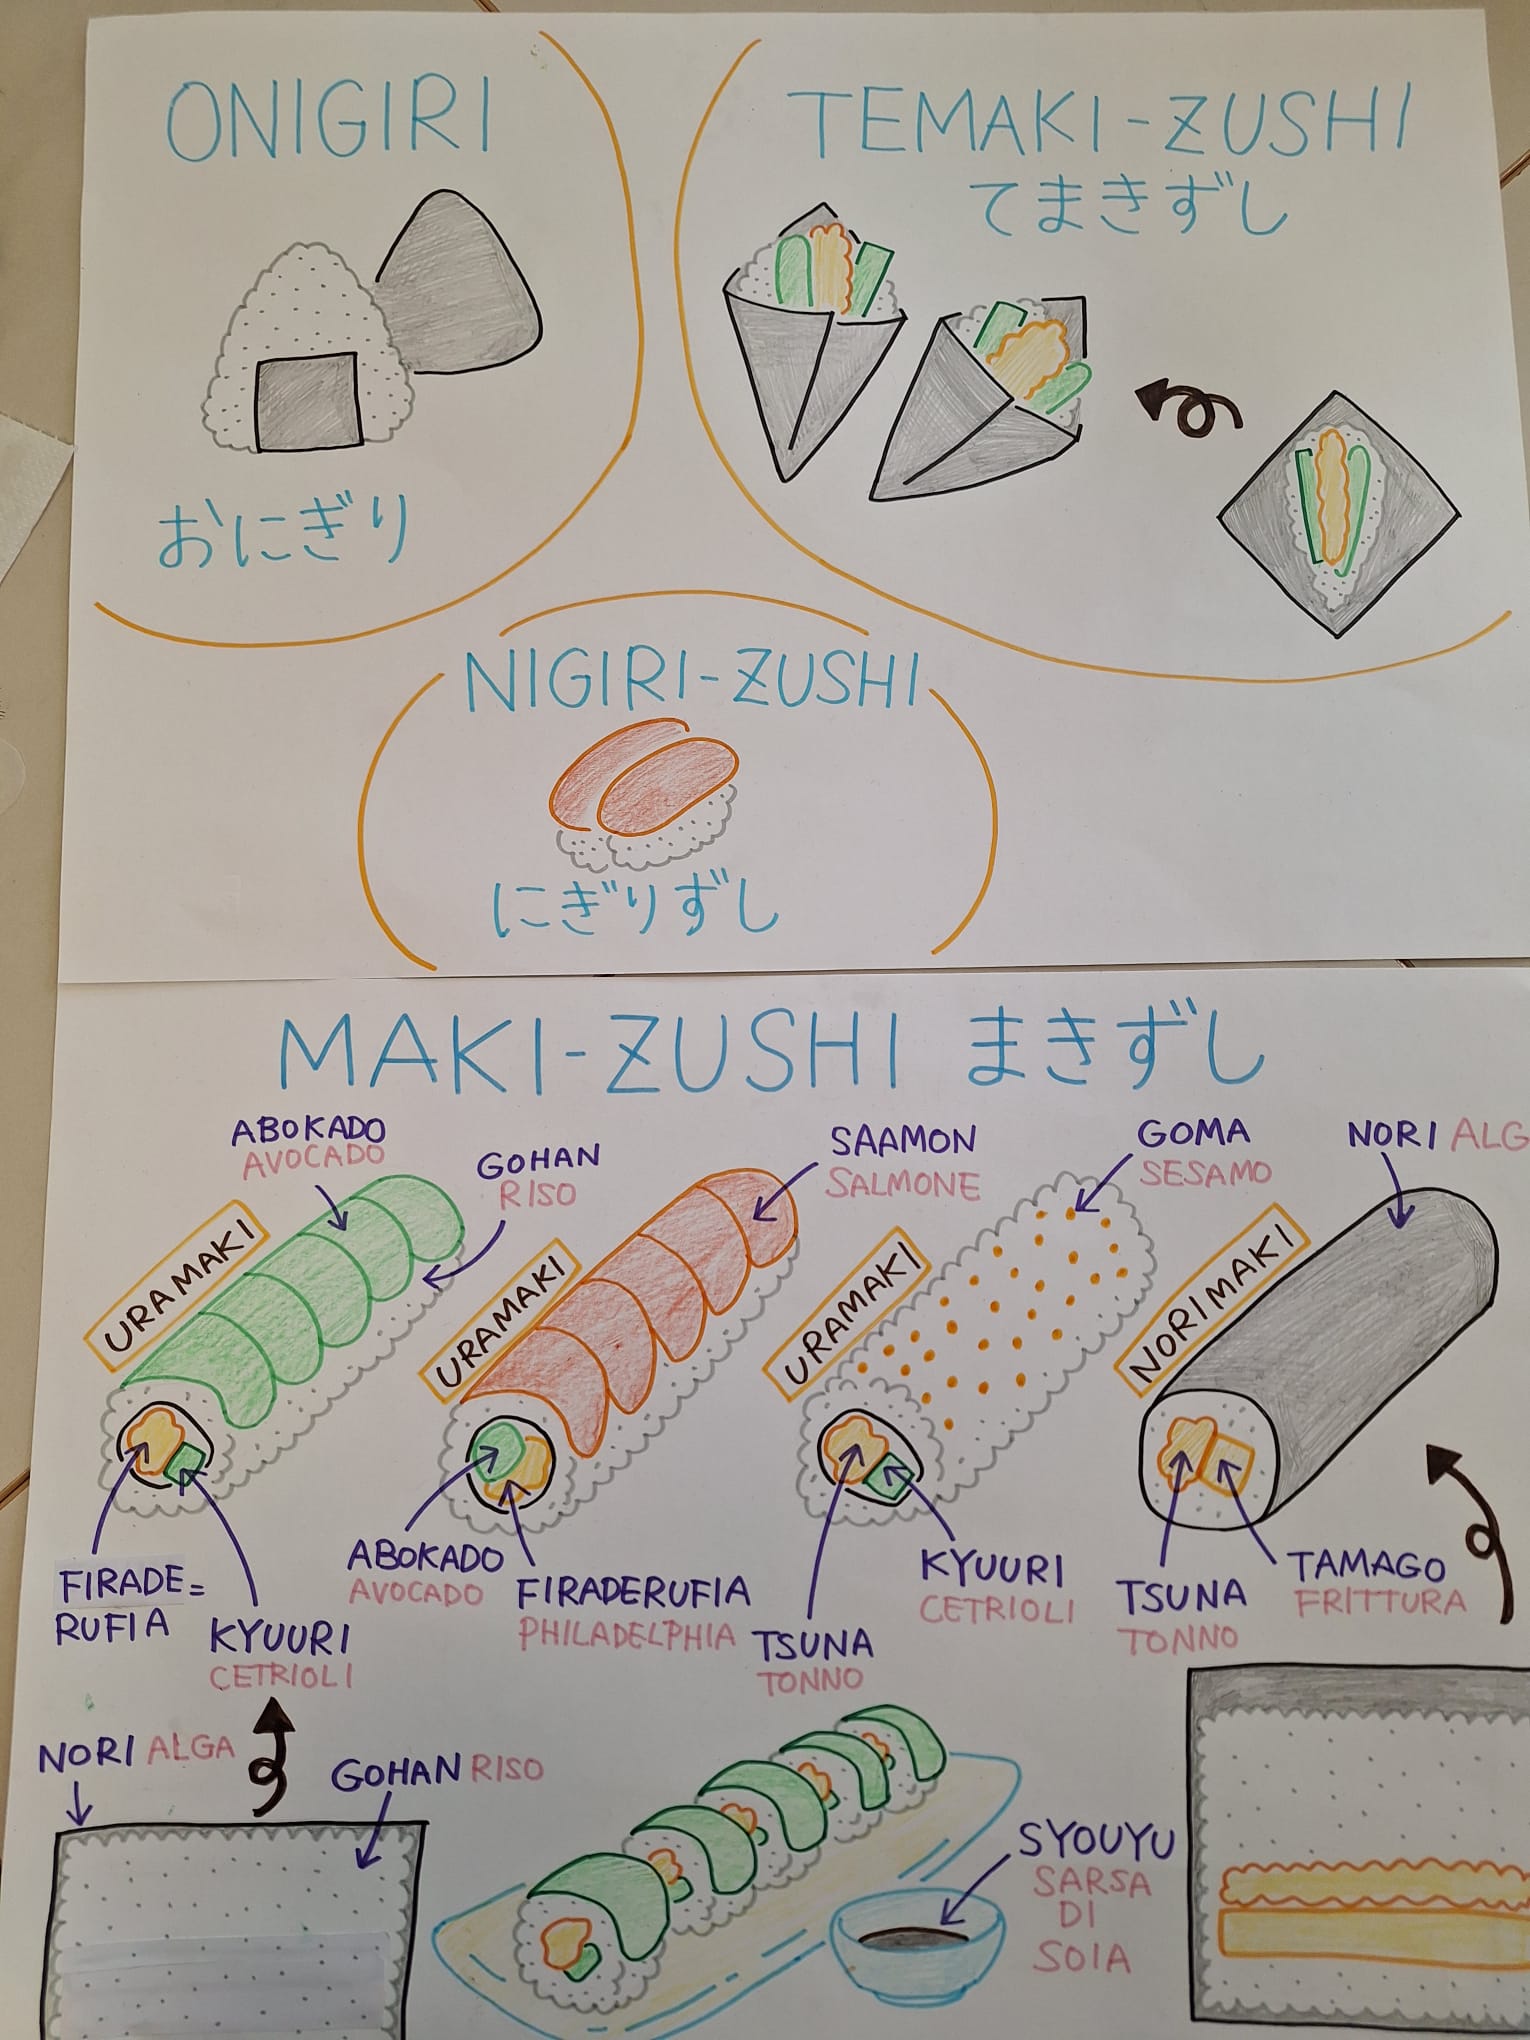 ONIGIRI
おにぎり
TEMAKI-ZUSHI
てまきずし
NIGIRI-ZUSHI
にぎりずし
MAKI-ZUSHI まきずし
ABOKADO
AVOCADO
GOHAN
RISO
SAAMON
SALMONE
GOMA
SESAMO
NORI ALG
URAMAKI
URAMAKI
URAMAKI
NORIMAKI
FIRADE=
RUFIA
KYUURI
CETRIOLI
ABOKADO
AVOCADO
FIRADERUFIA
PHILADELPHIA
TSUNA
TONNO
KYUURI
CETRIOLI
TSUNA
TONNO
TAMAGO
FRITTURA
NORI ALGA
GOHAN RISO
SYOUYU
SARSA
DI
SOIA